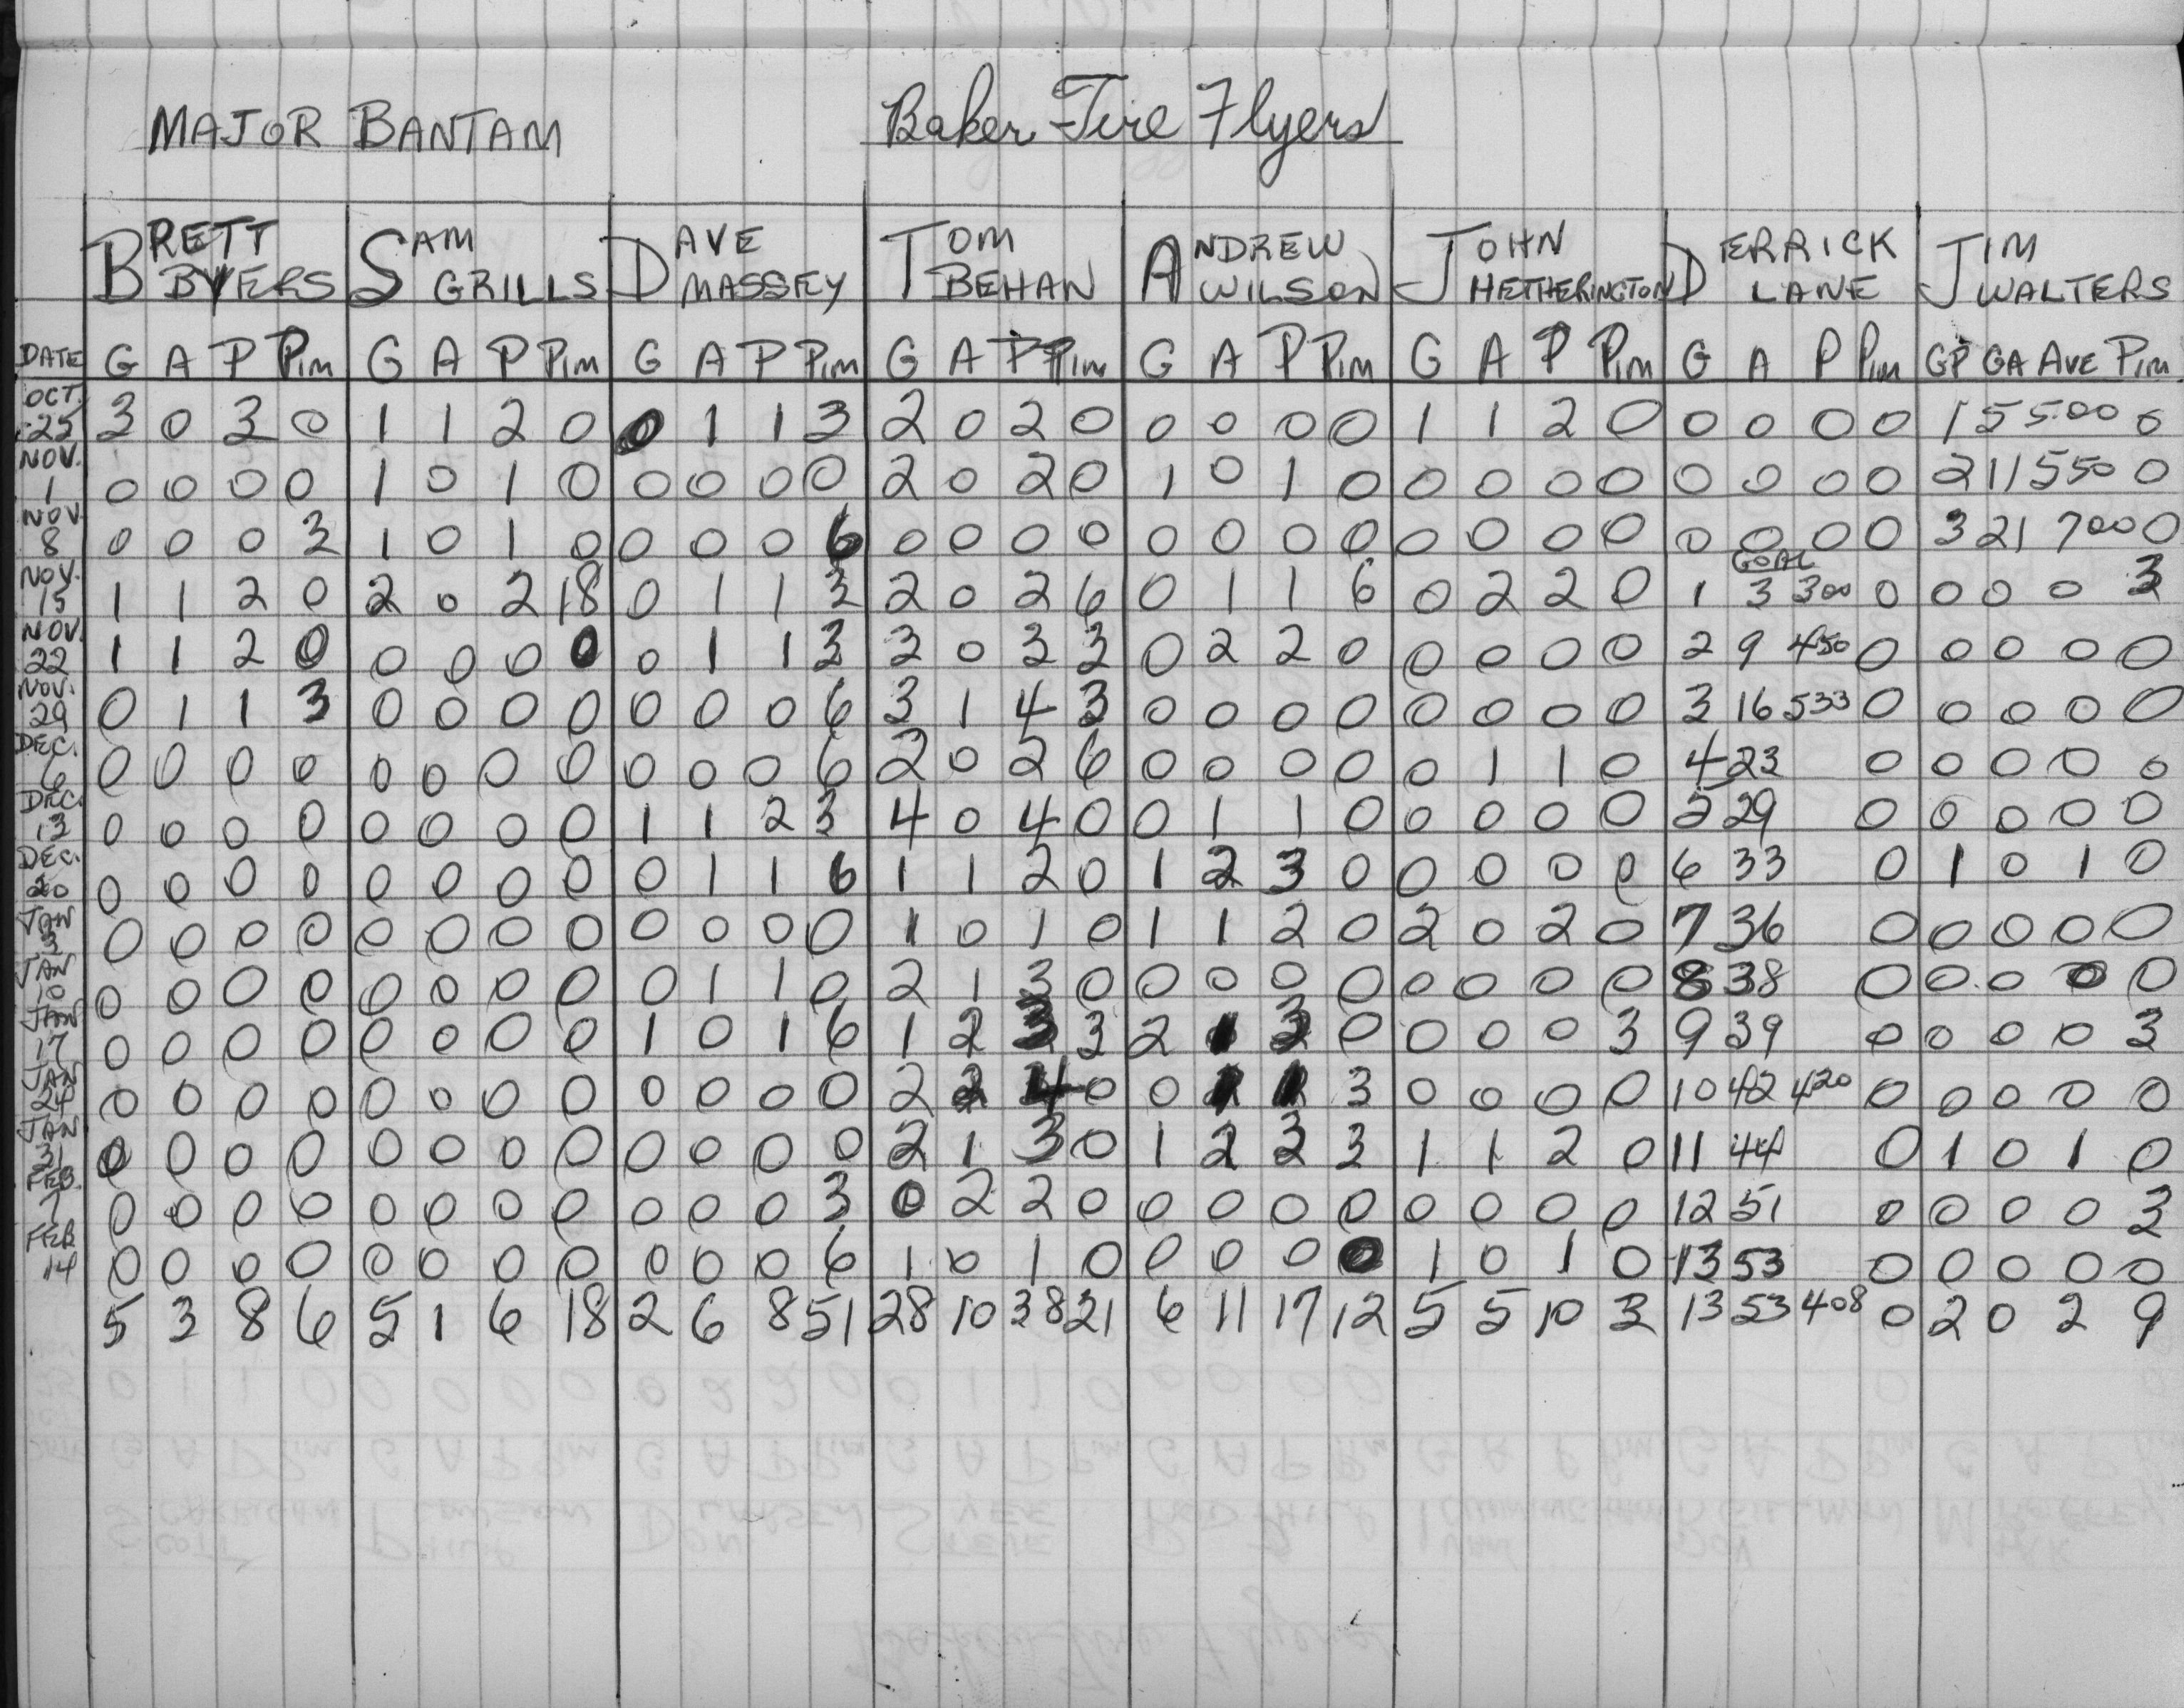 MAJOR BANTAM Baker Tire Flyers
BRETT SAM DAVE TOM ANDREW JOHN DERRICK JIM
BYERS GRILLS MASSEY BEHAN WILSON HETHERINGTON LANE WALTERS
DATE G A P Pim G A P Pim G A P Pim G A P Pim G A P Pim G A P Pim G A P Pim GP GA AVE Pim
OCT. 25 3 0 3 0 1 1 2 0 0 1 1 3 2 0 2 0 0 0 0 0 1 1 2 0 0 0 0 0 1 5 5.00 0
NOV. 1 0 0 0 0 1 0 1 0 0 0 0 0 2 0 2 0 1 0 1 0 0 0 0 0 0 0 0 0 2 11 550 0
NOV. 8 0 0 0 3 1 0 1 0 0 0 0 6 0 0 0 0 0 0 0 0 0 0 0 0 0 0 0 0 3 21 700 0
GOAL
NOV. 15 1 1 2 0 2 0 2 18 0 1 1 3 2 0 2 6 0 1 1 6 0 2 2 0 1 3 300 0 0 0 0 3
NOV. 22 1 1 2 0 0 0 0 0 0 1 1 3 3 0 3 3 0 2 2 0 0 0 0 0 2 9 450 0 0 0 0 0
NOV. 29 0 1 1 3 0 0 0 0 0 0 0 6 3 1 4 3 0 0 0 0 0 0 0 0 3 16 533 0 0 0 0 0
DEC. 6 0 0 0 0 0 0 0 0 0 0 0 6 2 0 2 6 0 0 0 0 0 1 1 0 4 23 0 0 0 0 0
DEC. 13 0 0 0 0 0 0 0 0 1 1 2 3 4 0 4 0 0 1 1 0 0 0 0 0 5 29 0 0 0 0 0
DEC. 20 0 0 0 0 0 0 0 0 0 1 1 6 1 1 2 0 1 2 3 0 0 0 0 0 6 33 0 1 0 1 0
JAN 3 0 0 0 0 0 0 0 0 0 0 0 0 1 0 1 0 1 1 2 0 2 0 2 0 7 36 0 0 0 0 0
JAN 10 0 0 0 0 0 0 0 0 0 1 1 0 2 1 3 0 0 0 0 0 0 0 0 0 8 38 0 0 0 0 0
JAN 17 0 0 0 0 0 0 0 0 1 0 1 6 1 2 3 3 2 1 3 0 0 0 0 3 9 39 0 0 0 0 3
JAN 24 0 0 0 0 0 0 0 0 0 0 0 0 2 2 4 0 0 1 1 3 0 0 0 0 10 42 420 0 0 0 0 0
JAN 31 0 0 0 0 0 0 0 0 0 0 0 0 2 1 3 0 1 2 3 3 1 1 2 0 11 44 0 1 0 1 0
FEB. 7 0 0 0 0 0 0 0 0 0 0 0 3 0 2 2 0 0 0 0 0 0 0 0 0 12 51 0 0 0 0 3
FEB 14 0 0 0 0 0 0 0 0 0 0 0 6 1 0 1 0 0 0 0 0 1 0 1 0 13 53 0 0 0 0 0
5 3 8 6 5 1 6 18 2 6 8 51 28 10 38 21 6 11 17 12 5 5 10 3 13 53 408 0 2 0 2 9